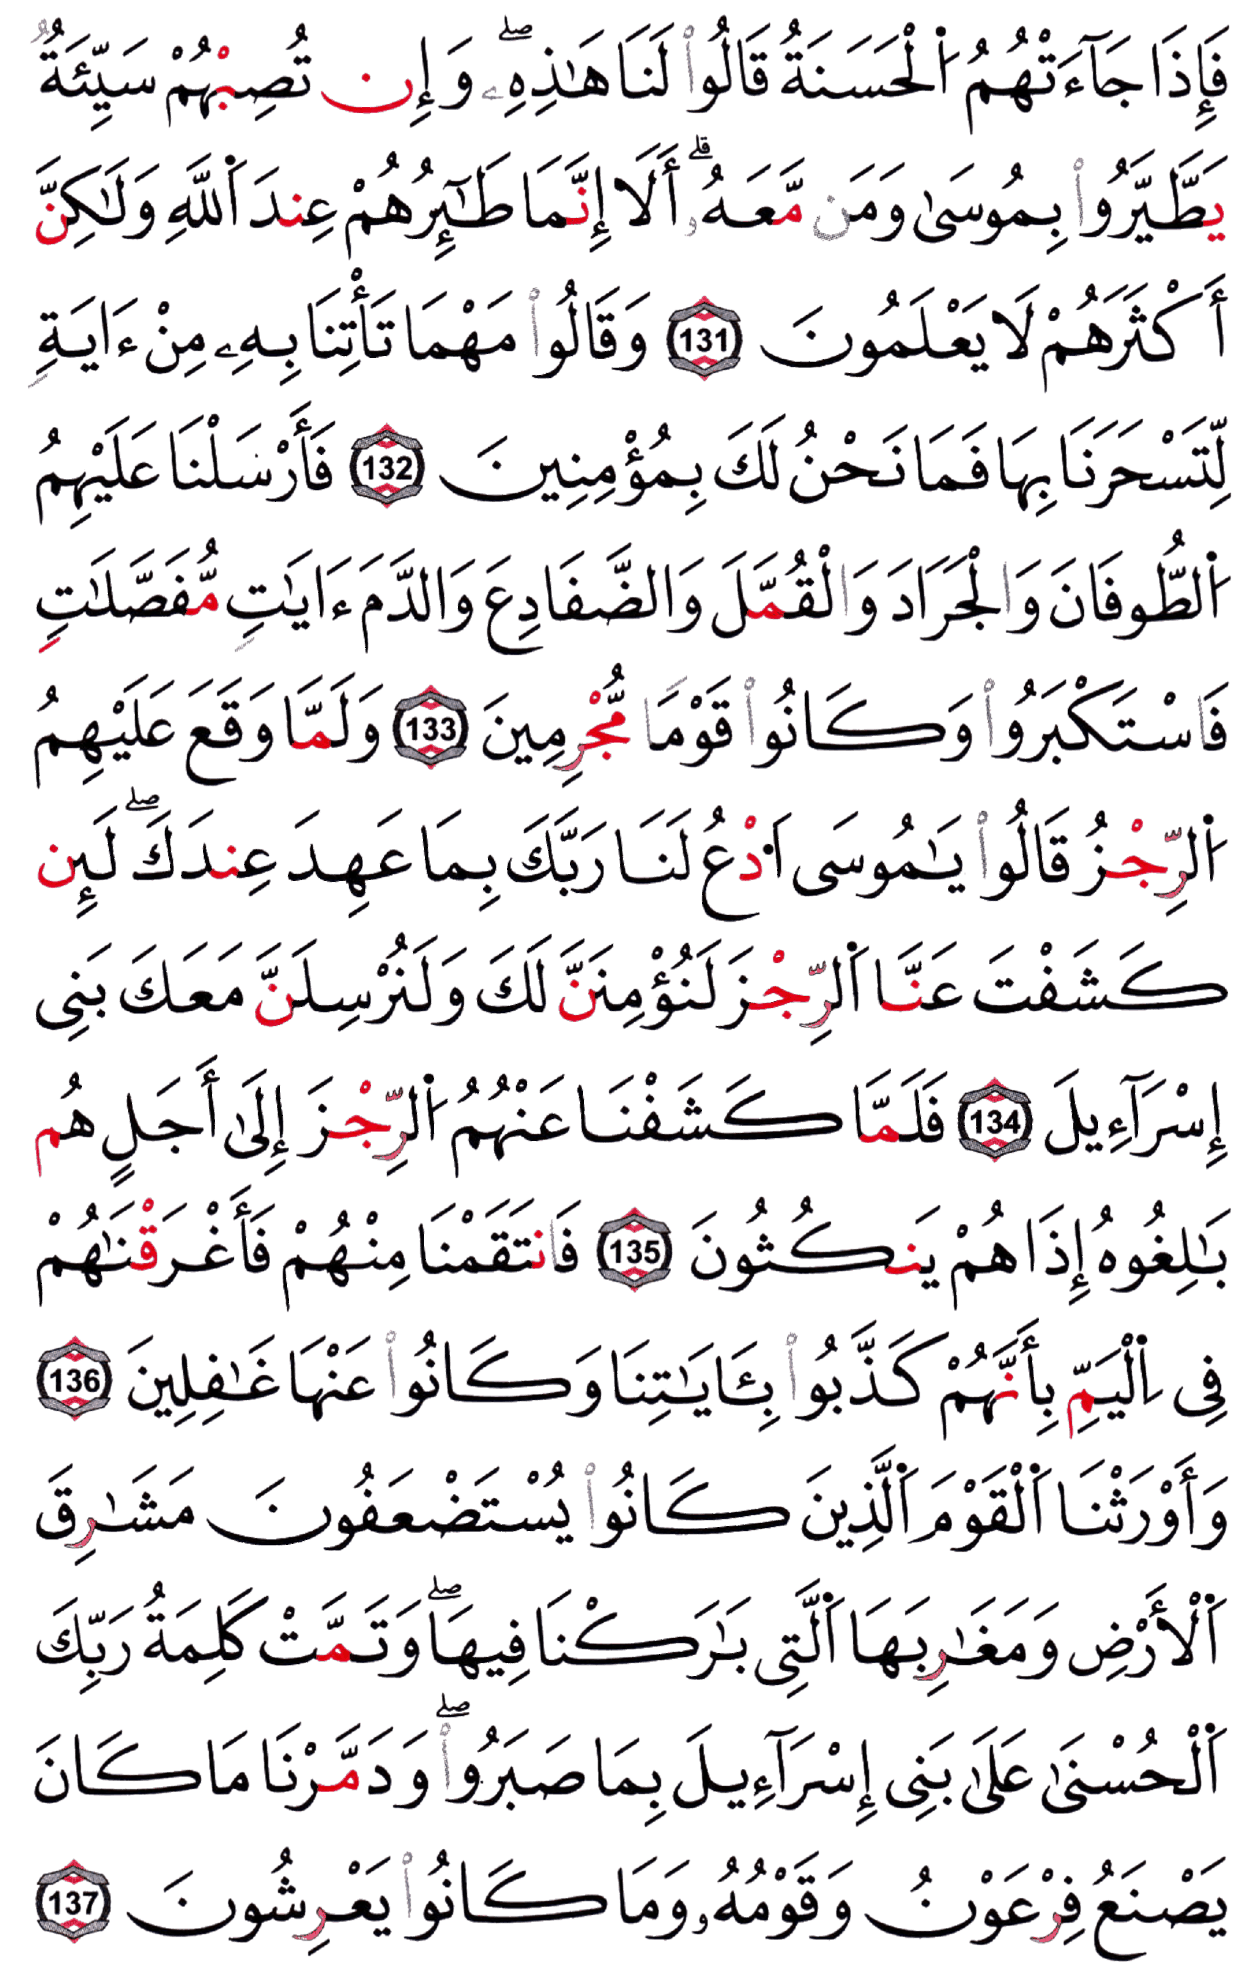 فَإِذَا جَآءَتْهُمُ اُ۬لْحَسَنَةُ قَالُواْ لَنَا هَٰذِهِۦۖ وَإِن تُصِبْهُمْ سَيِّئَةٞ
يَطَّيَّرُواْ بِمُوسَىٰ وَمَن مَّعَهُۥٓۗ أَلَآ إِنَّمَا طَٰٓئِرُهُمْ عِندَ اَ۬للَّهِ وَلَٰكِنَّ
أَكْثَرَهُمْ لَا يَعْلَمُونَ 131 وَقَالُواْ مَهْمَا تَأْتِنَا بِهِۦ مِنْ ءَايَةٖ
لِّتَسْحَرَنَا بِهَا فَمَا نَحْنُ لَكَ بِمُؤْمِنِينَ 132 فَأَرْسَلْنَا عَلَيْهِمُ
اُ۬لطُّوفَانَ وَالْجَرَادَ وَالْقُمَّلَ وَالضَّفَادِعَ وَالدَّمَ ءَايَٰتٖ مُّفَصَّلَٰتٖ
فَاسْتَكْبَرُواْ وَكَانُواْ قَوْمٗا مُّجْرِمِينَ 133 وَلَمَّا وَقَعَ عَلَيْهِمُ
اُ۬لرِّجْزُ قَالُواْ يَٰمُوسَى اَ۟دْعُ لَنَا رَبَّكَ بِمَا عَهِدَ عِندَكَۖ لَئِن
كَشَفْتَ عَنَّا اَ۬لرِّجْزَ لَنُؤْمِنَنَّ لَكَ وَلَنُرْسِلَنَّ مَعَكَ بَنِي
إِسْرَآءِيلَ 134 فَلَمَّا كَشَفْنَا عَنْهُمُ اُ۬لرِّجْزَ إِلَىٰٓ أَجَلٍ هُم
بَٰلِغُوهُ إِذَا هُمْ يَنكُثُونَ 135 فَانتَقَمْنَا مِنْهُمْ فَأَغْرَقْنَٰهُمْ
فِي اِ۬لْيَمِّ بِأَنَّهُمْ كَذَّبُواْ بِـَٔايَٰتِنَا وَكَانُواْ عَنْهَا غَٰفِلِينَ 136
وَأَوْرَثْنَا اَ۬لْقَوْمَ اَ۬لَّذِينَ كَانُواْ يُسْتَضْعَفُونَ مَشَٰرِقَ
اَ۬لْأَرْضِ وَمَغَٰرِبَهَا اَ۬لَّتِي بَٰرَكْنَا فِيهَاۖ وَتَمَّتْ كَلِمَةُ رَبِّكَ
اَ۬لْحُسْنَىٰ عَلَىٰ بَنِي إِسْرَآءِيلَ بِمَا صَبَرُواْۖ وَدَمَّرْنَا مَا كَانَ
يَصْنَعُ فِرْعَوْنُ وَقَوْمُهُۥ وَمَا كَانُواْ يَعْرِشُونَ 137